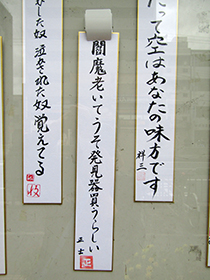 だって空はあなたの味方です
祥三
閻魔老いてうそ発見器買うらしい
正士
した奴 泣かされた奴 覚えてる